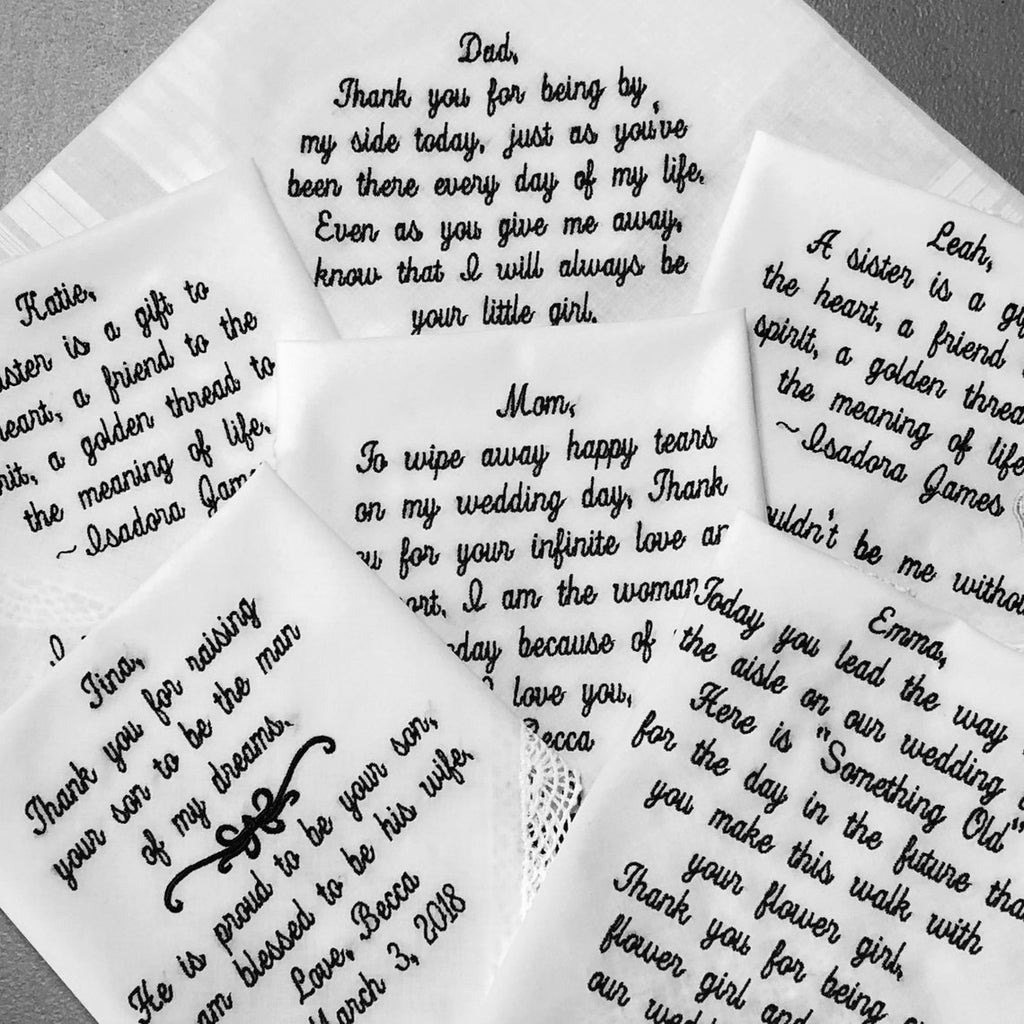 Dad,
Thank you for being by
my side today, just as you've
been there every day of my life.
Even as you give me away,
know that I will always be
your little girl.
Katie,
sister is a gift to
heart, a friend to the
spirit, a golden thread to
the meaning of life.
~Isadora
Leah,
A sister is a
the heart, a friend
spirit, a golden
the meaning of life
~Isadora James
be me
Mom,
To wipe away happy tears
on my wedding day, Thank
for your infinite love
I am the woman
because of
I love you,
Becca
Tina,
Thank you for raising
your son to be the man
of my dreams.
He is proud to be your son,
am blessed to be his wife.
Love, Becca
March 3, 2018
Emma,
Today you lead the way
the aisle on our wedding
Here is "Something Old"
for the day in the future
you make this walk with
your flower girl.
Thank you for being
flower girl and
our